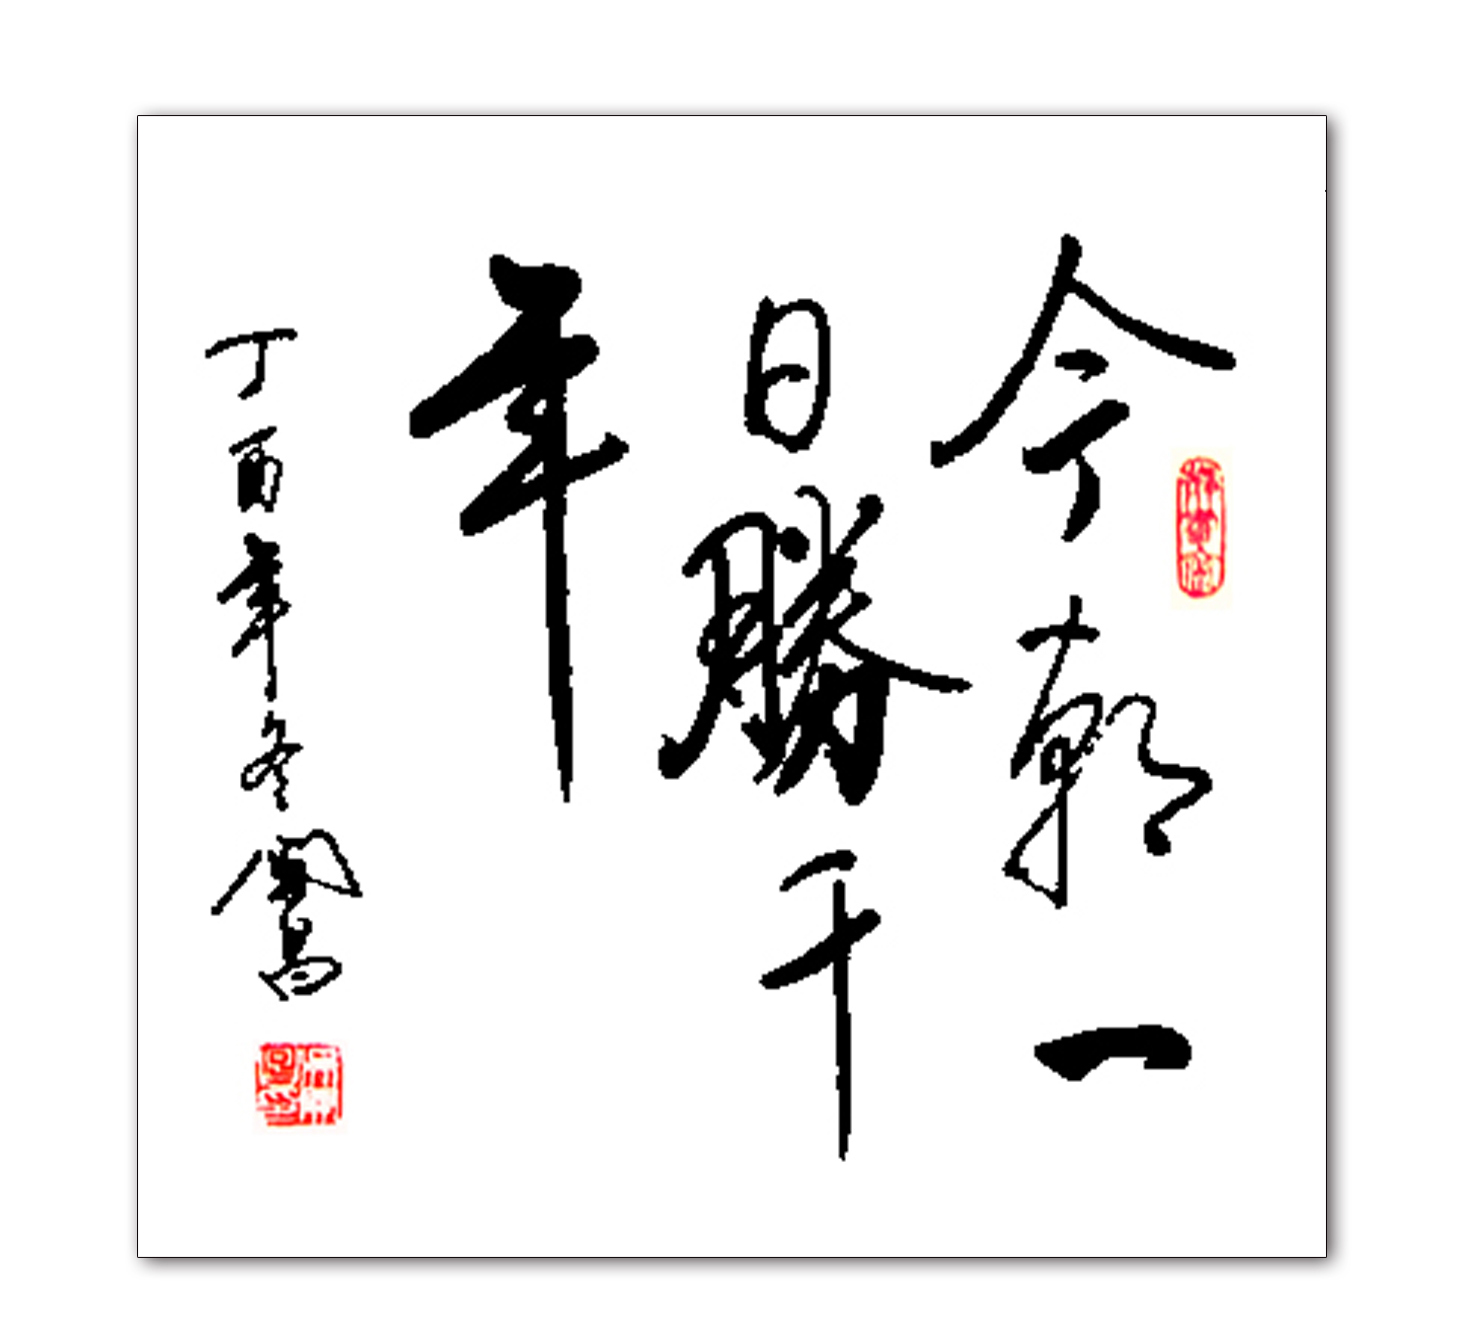 今朝一
日勝千
年
丁酉年冬